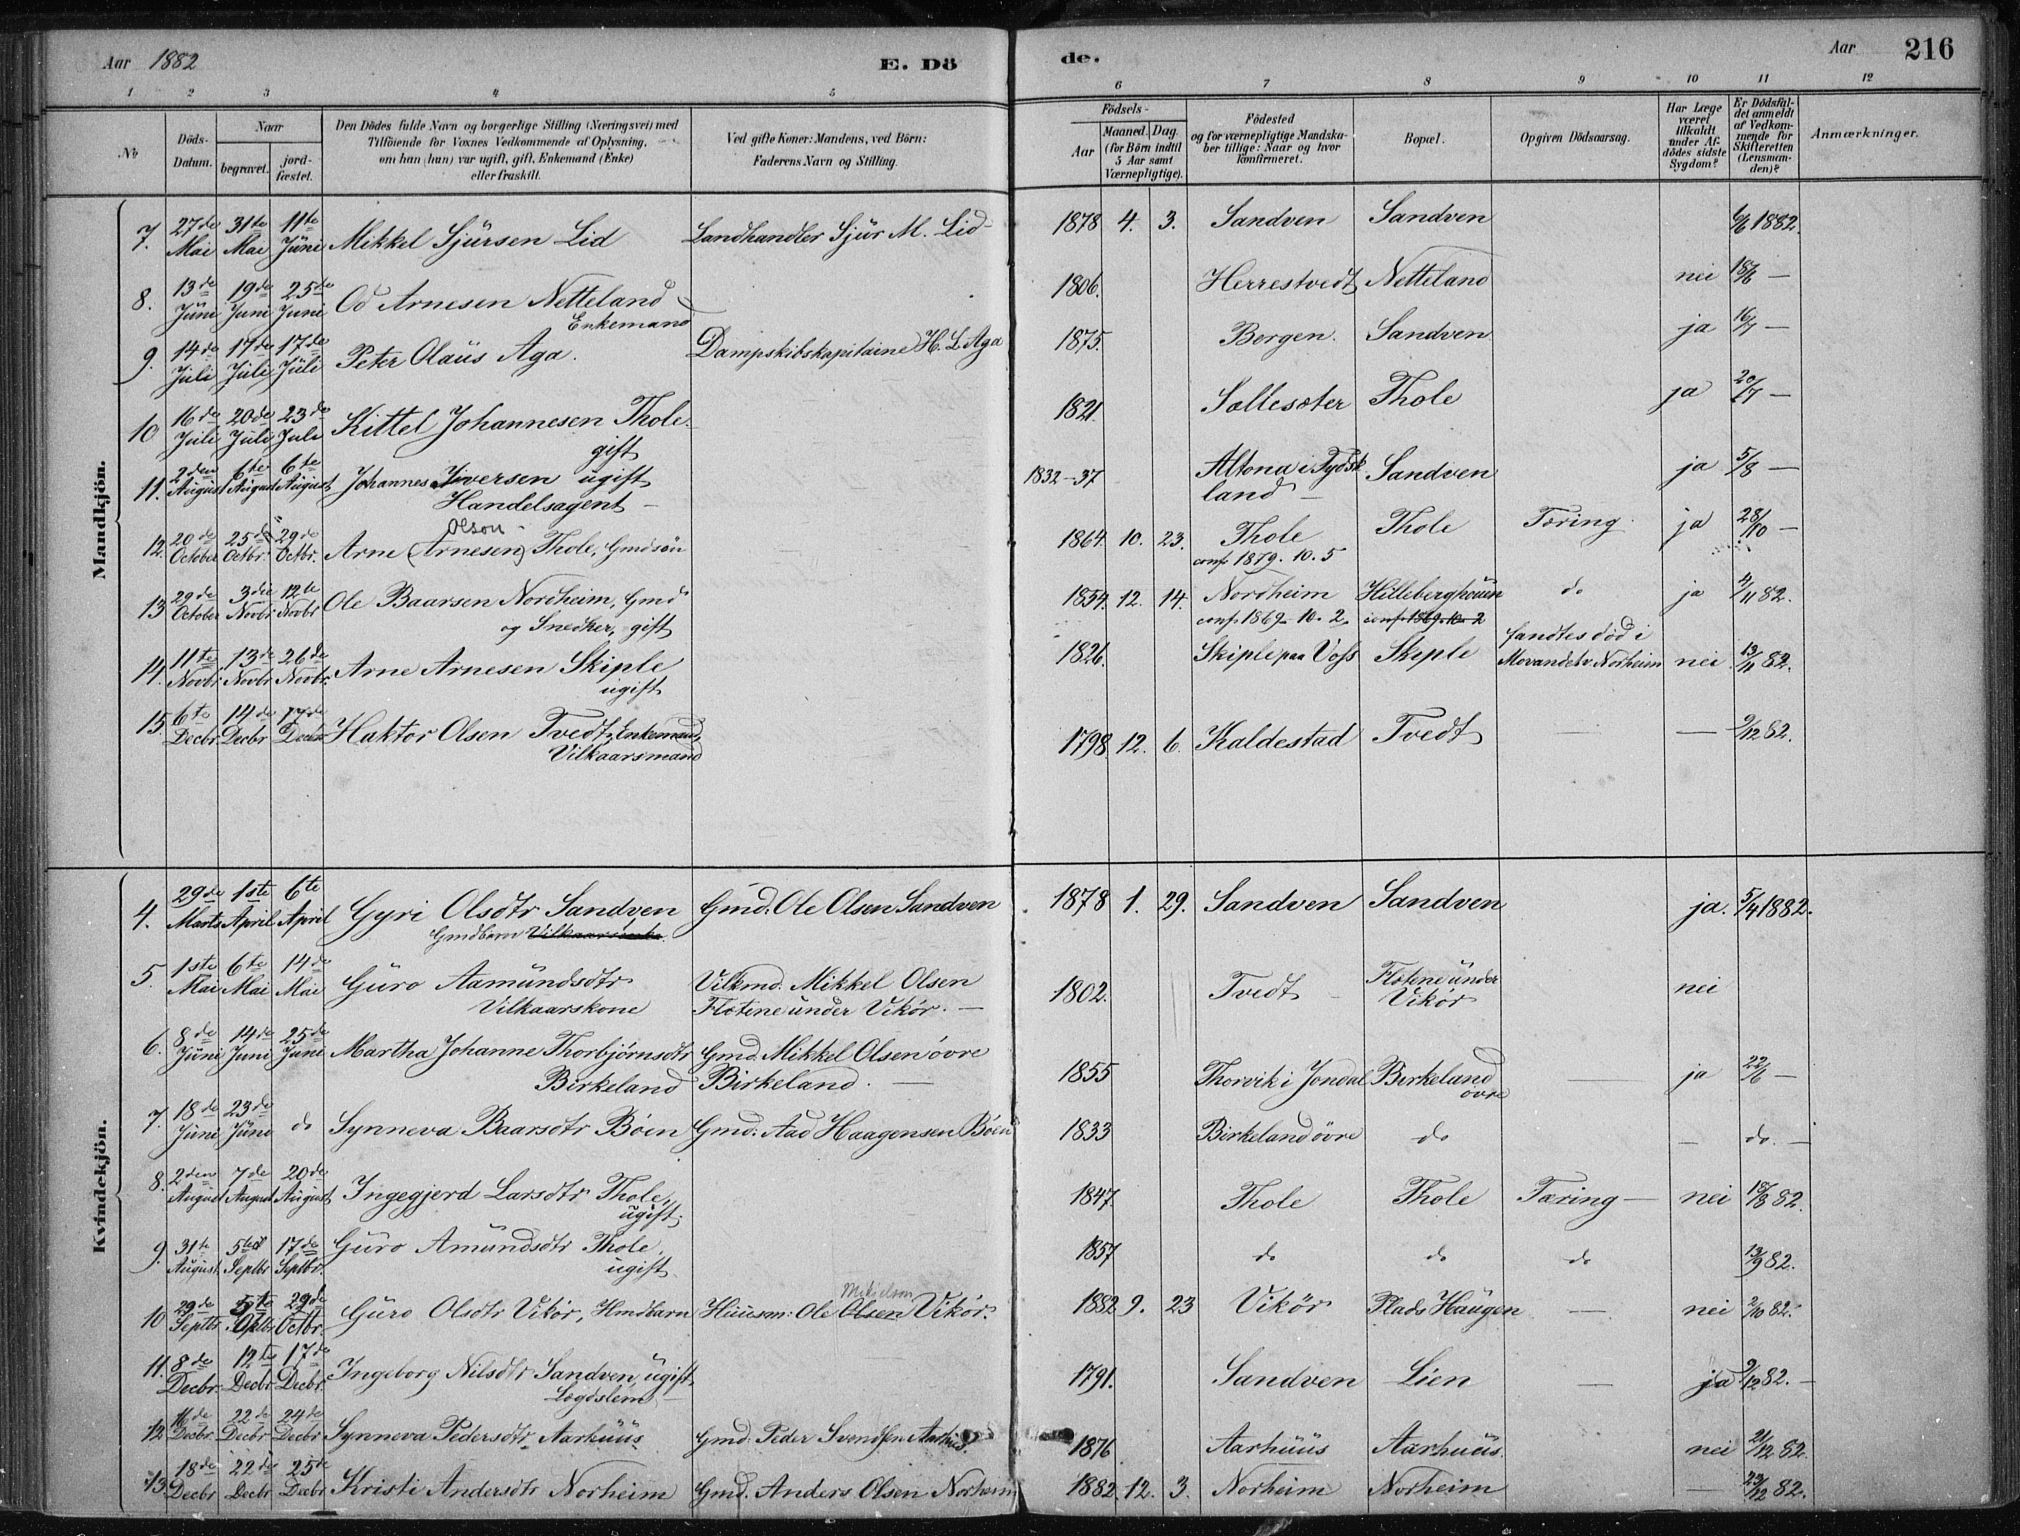 Aar 1882 E. Dö de. Aar 216
1 2 3 4 5 6 7 8 9 10 11 12
No
Döds-
Datum.
Naar
begravet.
jord-
fæstet.
Den Dödes fulde Navn og borgerlige Stilling (Næringsvei) med
Tilföiende for Voxnes Vedkommende af Oplysning,
om han (hun) var ugift, gift, Enkemand (Enke)
eller fraskilt.
Ved gifte Koner: Mandens, ved Börn:
Faderens Navn og Stilling.
Födsels-
Aar
Maaned. Dag.
(for Börn indtil
5 Aar samt
Værnepligtige).
Födested
og for værnepligtige Mandska-
ber tillige: Naar og hvor
konfirmeret.
Bopæl.
Opgiven Dödsaarsag.
Har Læge
været
tilkaldt
under Af-
dödes sidste
Sygdom?
Er Dödsfal-
det anmeldt
af Vedkom-
mende for
Skifteretten
(Lensman-
den)?
Anmærkninger.
Mandkjön.
7. 27de Mai 31te Mai 11te Juni Mikkel Sjursen Lid Landhandler Sjur M. Lid 1878 4. 3. Sandven Sandven 6/6 1882.
8. 13de Juni 19de Juni 25de Juni Od Arnesen Netteland 1806. Herrestvedt Netteland nei 18/6 —
Enkemand
9. 14de Juli 17de Juli 17de Juli Peter Olaüs Aga. Dampskibskapitaine H. L. Aga 1875. Bergen. Sandven ja 16/7 —
10 16de Juli 20de Juli 23de Juli Kittel Johannesen Thole. 1821. Sællesæter Thole ja 20/7 —
gift
11. 2den August 6te August 6te August Johannes Iversen ugift 1832-37 Altona i Tydsk Sandven ja 5/8 —
Handelsagent — land —
Olson
12. 20de October 25de Octbr. 29de Octbr. Arne (Arnesen) Thole, Gmdsøn 1864. 10. 23. Thole Thole Tæring. ja 28/10 —
conf 1879. 10. 5
13 29de October 3die Novbr. 12te Novbr Ole Baarsen Nordheim, Gmd 1854. 12. 14. Nordheim Hillebergheuen do ja 4/11 82.
og Snedker, gift conf 1869. 10. 2. conf 1869. 10. 2
14. 11te Novbr. 13de Novbr 26de Novbr. Arne Arnesen Skiple 1826. Skiple paa Voss Skiple fandtes død i
Movandet v. Norheim nei 13/11 82.
ugift
15. 6te Decbr. 14de Decbr 17de Decbr Haktor Olsen Tvedt, Enkemand, 1798. 12. 6. Kaldestad Tvedt — — 9/12 82.
Vilkaarsmand
Kvindekjön.
4. 29de Marts 1ste April 6te April Gyri Olsdtr Sandven Gmd. Ole Olsen Sandven 1878 1. 29. Sandven Sandven ja. 5/4 1882.
Gmdbarn Vilkaarsenke.
5. 1ste Mai 6te Mai 14de Mai Guro Aamundsdtr Vilkmd. Mikkel Olsen 1802. Tvedt — Flotene under nei
Vilkaarskone Flotene under Vikør. — Vikør
6. 8de Juni 14de Juni 25de Juni Martha Johanne Thorbjørnsdtr Gmd. Mikkel Olsen øvre 1855 Thorvik i Jondal Birkeland — ja 22/6 —
Birkeland Birkeland. — øvre
7. 18de Juni 23de Juni do Synneva Baarsdtr Bøen Gmd: Aad Haagensen Bøen 1833 Birkeland øvre do — do. —
8. 2den August 7de August 20de August Ingegjerd Larsdtr Thole, 1847. Thole Thole Tæring — nei 18/8 82.
ugift.
9. 31te August. 5te Septbr 17de Septbr. Guro Amundsdtr Thole, 1857 do do do 13/9 82.
ugift.
Mikielsen
10 29de Septbr 5te 29de Octbr. Guro Olsdtr Vikør, Hmdbarn Huusm: Ole Olsen Vikør. 1882 9. 23 Vikør Plads Haugen — nei 2/10 82.
11. 8de Decbr. 12te Decbr 17de Decbr. Ingeborg Nilsdtr Sandven, ugift, 1791. Sandven Lien — ja 9/12 82. —
Lægdslem —
12 16de Decbr. 22de Decbr 24de Decbr Synneva Pedersdtr Aarhuus Gmd. Peder Svendsen 1876 Aarhuus Aarhuus. nei 21/12 82.
13. 18de Decbr 22de Decbr 25de Decbr Kristi Andersdtr Norheim Gmd. Anders Olsen Norheim 1882. 12. 3. Norheim Norheim — 23/12 82.